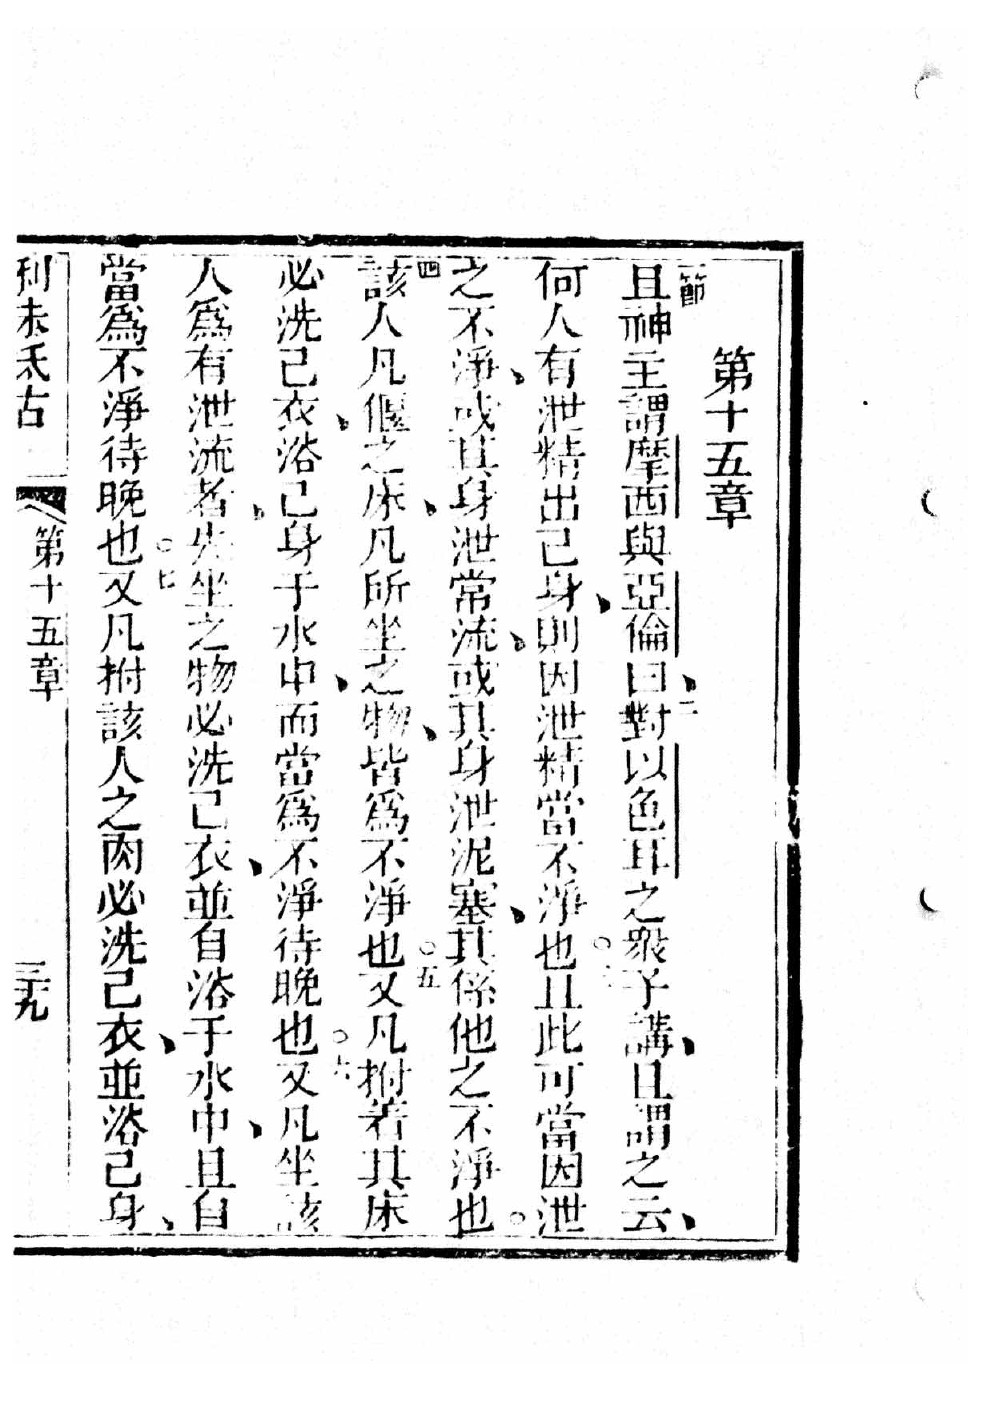 第十五章
節且神主謂摩西與亞倫曰、二對以色耳之衆子講、且謂之云、
何人有泄精出己身、則因泄精當不淨也。三且此可當因泄
之不淨、或其身泄常流、或其身泄泥塞、其係他之不淨也。
四該人凡偃之床、凡所坐之物、皆爲不淨也。五又凡拊着其床
必洗己衣、浴己身于水中、而當爲不淨待晚也。六又凡坐該
人爲有泄流者、先坐之物必洗己衣、並自浴于水中、且自
當爲不淨待晚也。七又凡拊該人之肉必洗己衣、並浴己身、
利未氏古 第十五章 三十九